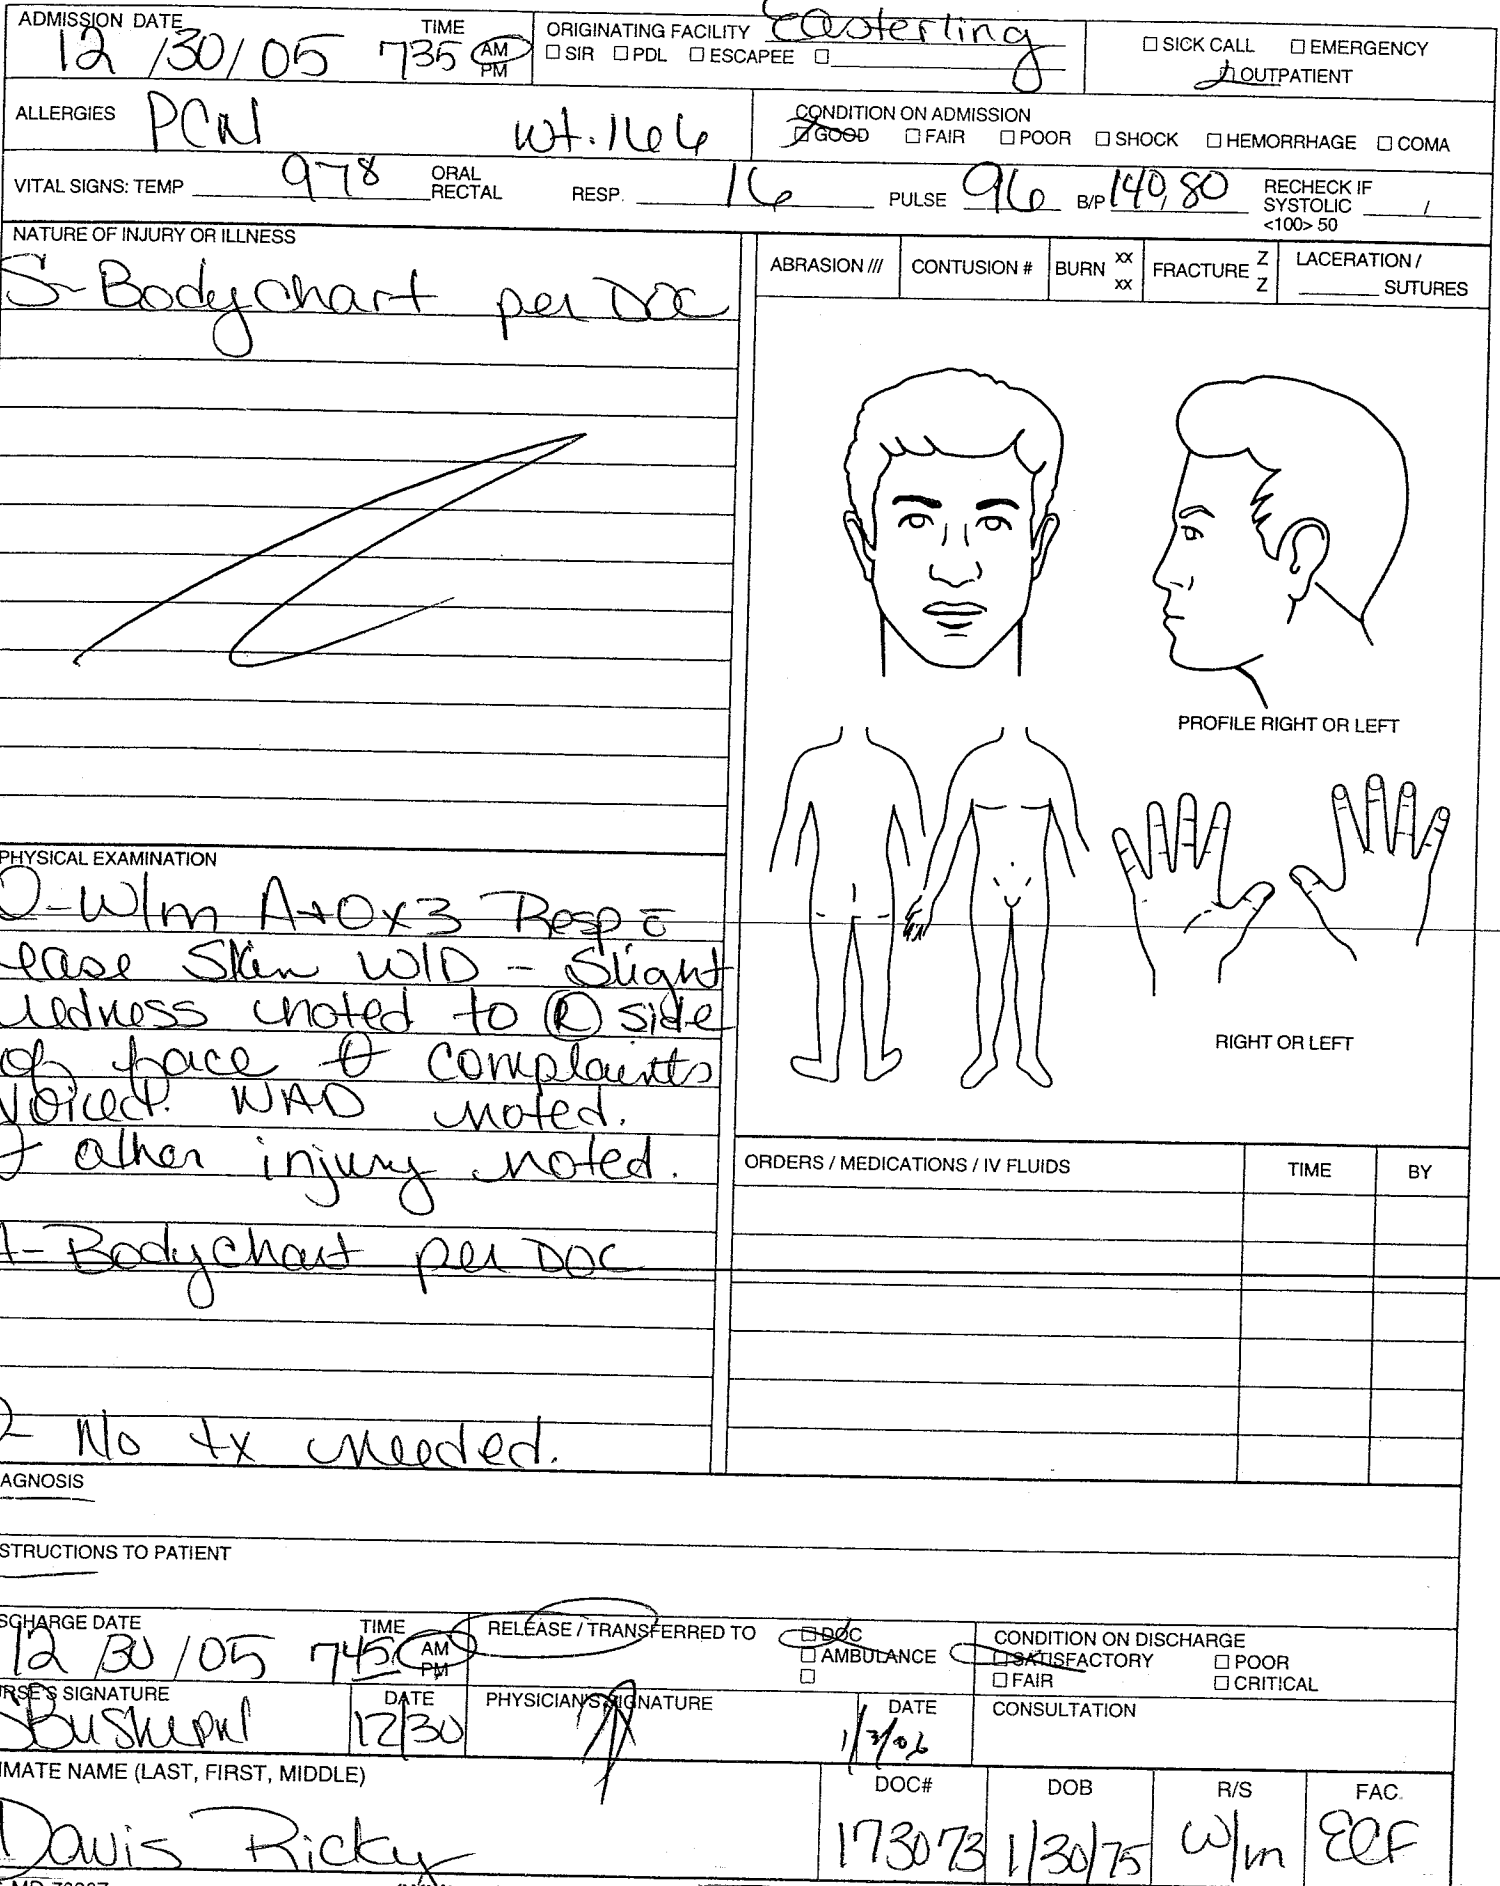 ADMISSION DATE TIME ORIGINATING FACILITY Easterling
12 /30/ 05 735 AM PM □ SIR □ PDL □ ESCAPEE □ □ SICK CALL □ EMERGENCY
□ OUTPATIENT
ALLERGIES PCN wt. 166 CONDITION ON ADMISSION
□ GOOD □ FAIR □ POOR □ SHOCK □ HEMORRHAGE □ COMA
VITAL SIGNS: TEMP 978 ORAL RECTAL RESP. 16 PULSE 96 B/P 140/80 RECHECK IF SYSTOLIC / <100> 50
NATURE OF INJURY OR ILLNESS
ABRASION /// CONTUSION # BURN xx xx FRACTURE Z Z LACERATION / SUTURES
S- Body chart per DOC
PROFILE RIGHT OR LEFT
RIGHT OR LEFT
PHYSICAL EXAMINATION
O- W/m A+Ox3 Resp c̄
ease Skin W/D - Slight
redness noted to (R) side
of face θ complaints
voiced. NAD noted.
other injury noted.
A- Body chart per DOC
- No tx needed.
ORDERS / MEDICATIONS / IV FLUIDS TIME BY
AGNOSIS
STRUCTIONS TO PATIENT
SCHARGE DATE TIME RELEASE / TRANSFERRED TO □ DOC CONDITION ON DISCHARGE
12 /30 /05 745 AM PM □ AMBULANCE □ SATISFACTORY □ POOR
□ □ FAIR □ CRITICAL
RSE'S SIGNATURE DATE PHYSICIAN'S SIGNATURE DATE CONSULTATION
12/30 1/3/06
MATE NAME (LAST, FIRST, MIDDLE) DOC# DOB R/S FAC.
Davis Ricky 173073 1/30/75 W/m ECF